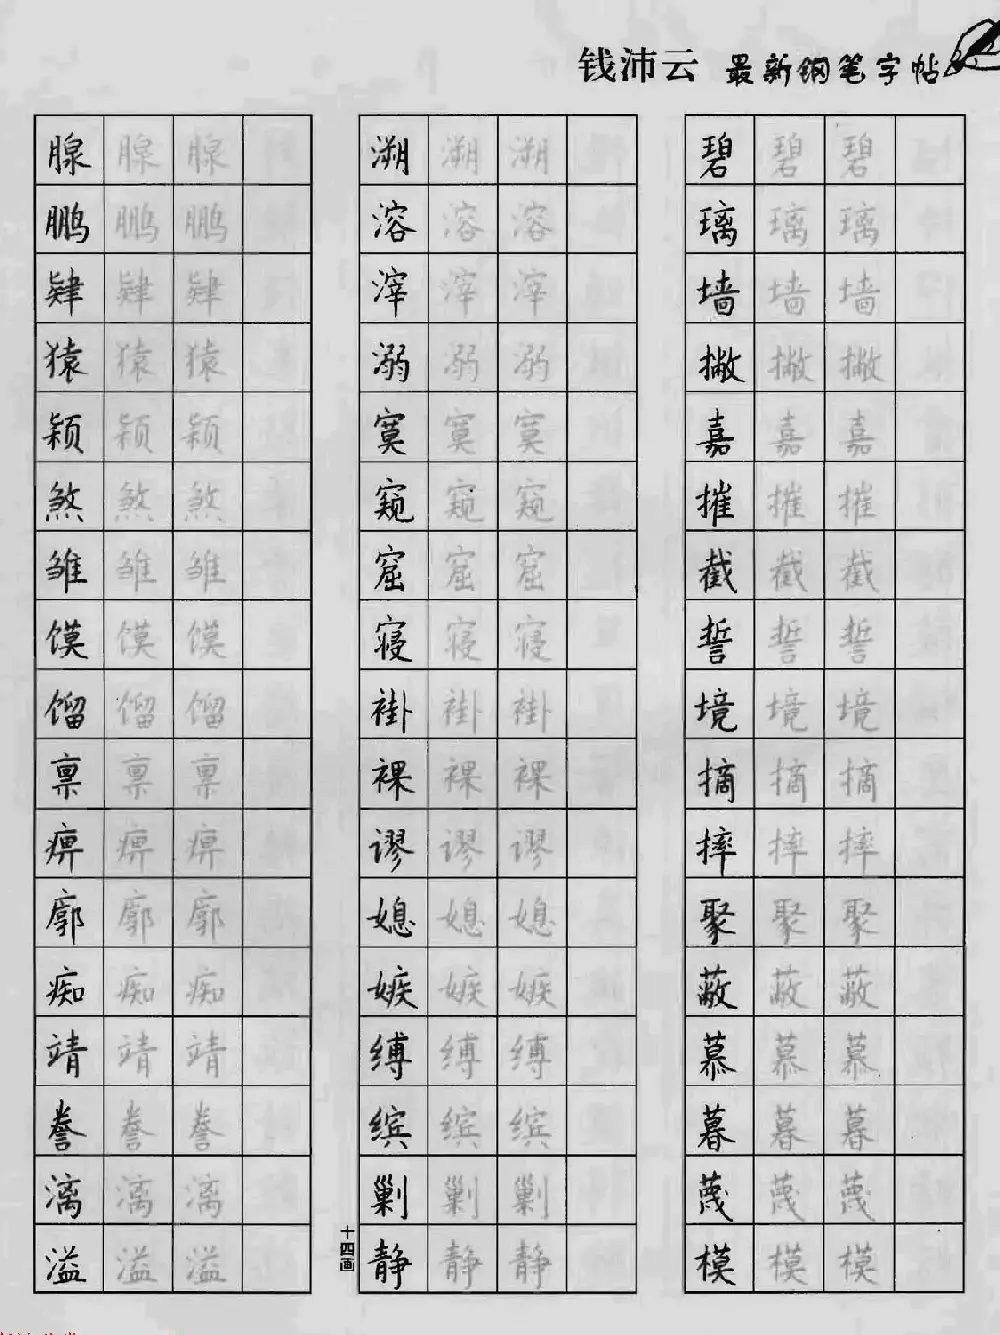 钱沛云 最新钢笔字帖
腺 腺 腺 溯 溯 溯 碧 碧 碧
鹏 鹏 鹏 溶 溶 溶 璃 璃 璃
肄 肄 肄 滓 滓 滓 墙 墙 墙
猿 猿 猿 溺 溺 溺 撇 撇 撇
颖 颖 颖 寞 寞 寞 嘉 嘉 嘉
煞 煞 煞 窥 窥 窥 摧 摧 摧
雏 雏 雏 窟 窟 窟 截 截 截
馍 馍 馍 寝 寝 寝 誓 誓 誓
馏 馏 馏 褂 褂 褂 境 境 境
禀 禀 禀 裸 裸 裸 摘 摘 摘
痹 痹 痹 谬 谬 谬 摔 摔 摔
廓 廓 廓 媳 媳 媳 聚 聚 聚
痴 痴 痴 嫉 嫉 嫉 蔽 蔽 蔽
靖 靖 靖 缚 缚 缚 慕 慕 慕
誊 誊 誊 缤 缤 缤 暮 暮 暮
漓 漓 漓 剿 剿 剿 蔑 蔑 蔑
溢 溢 溢 十四画 静 静 静 模 模 模